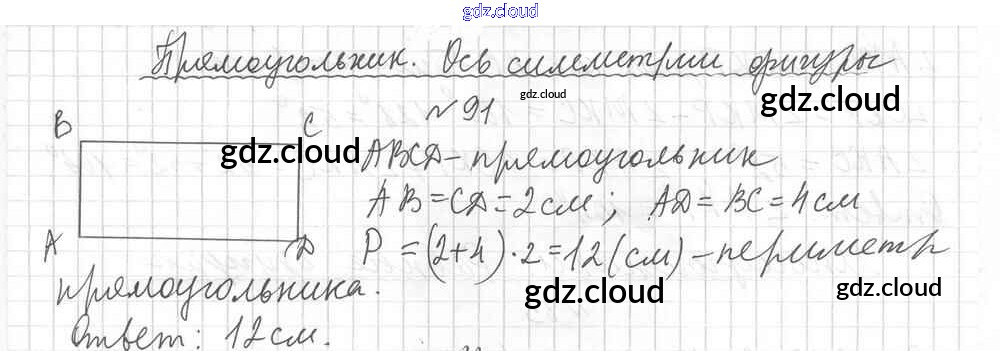 gdz.cloud
gdz.cloud
Прямоугольник. Ось симметрии фигуры
gdz.cloud
№91
gdz.cloud
B C
gdz.cloud
ABCD - прямоугольник
AB = CD = 2 см; AD = BC = 4 см
A D
P = (2+4)·2 = 12 (см) - периметр
прямоугольника.
gdz.cloud
gdz.cloud
Ответ: 12 см.